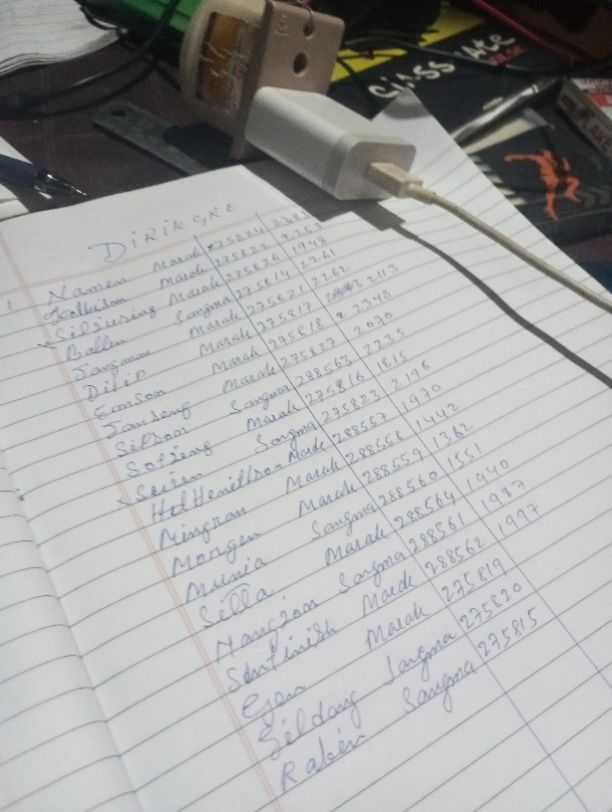 Classmate
DIRIKGRE
Namen Marak 275824
Marak 275822 2253
Silsusing Marak 275826 1948
Ballen Sangma 275814 2261
Jangman Marak 275821 2262
Dilip Marak 275817 2113
Emson Marak 275818 2348
Janseng Marak 2070
Silpson Sangma 288563 2235
Marak 275816 1815
Sangma 275823 2196
288557 1970
Mingran Marak 288558 1442
Morgen Marak 288559 1362
Munia Sangma 288560 1551
Silla Marak 288564 1940
Nangjon Sangma 288561 1987
Marak 288562 1997
Marak 275819
Sildang Sangma 275820
Raben Sangma 275815